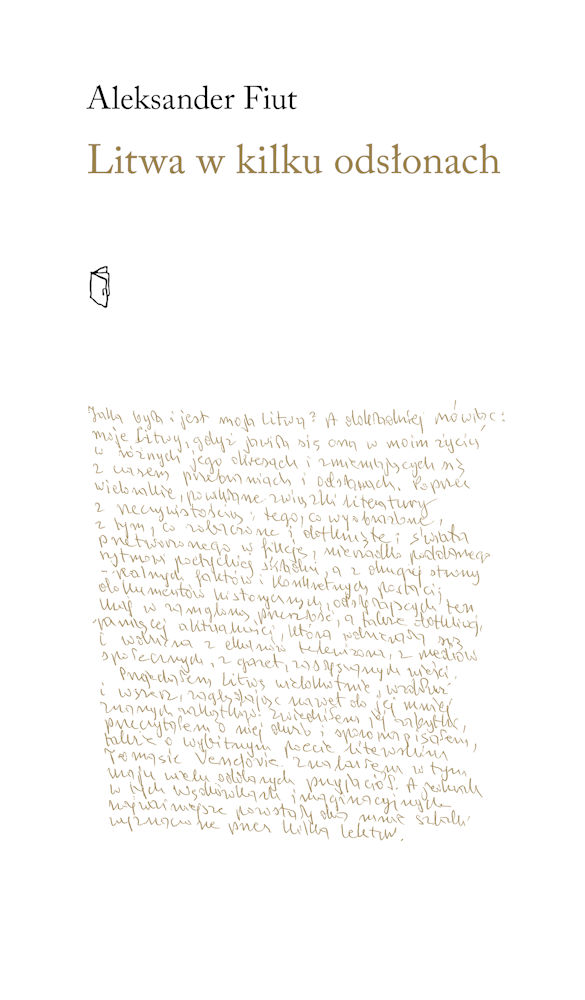 Aleksander Fiut
Litwa w kilku odsłonach
Jaka była i jest moja Litwa? A dokładniej mówiąc:
moje Litwy, gdyż jawiła się ona w moim życiu
w różnych jego okresach i zmieniających się
z czasem przebraniach i odsłonach. Poprzez
wielorakie, powikłane związki literatury
z rzeczywistością: tego, co wyobrażone,
z tym, co zobaczone i dotknięte i świata
przetworzonego w fikcję, nierzadko poddanego
rytmowi poetyckiej, a z drugiej strony
realnych faktów i konkretnych postaci,
dokumentów historycznych, odsyłających ten
w zamgloną przeszłość, a także dotkliwej,
aktualności, która
i z ekranów telewizora, z mediów
społecznych, z gazet, zasłyszanych wieści.
Przejechałem Litwę wielokrotnie, wzdłuż
i wszerz, zaglądając nawet do jej mniej
znanych zakątków. Zwiedziłem jej zabytki,
przeczytałem o niej dużo i sporo napisałem,
także o wybitnym poecie litewskim
Tomasie Venclovie. Znalazłem w tym
kraju wielu oddanych przyjaciół. A jednak
w tych wędrówkach imaginacyjnych
najważniejsze pozostały dla mnie szlaki
wyznaczone przez kilka lektur.